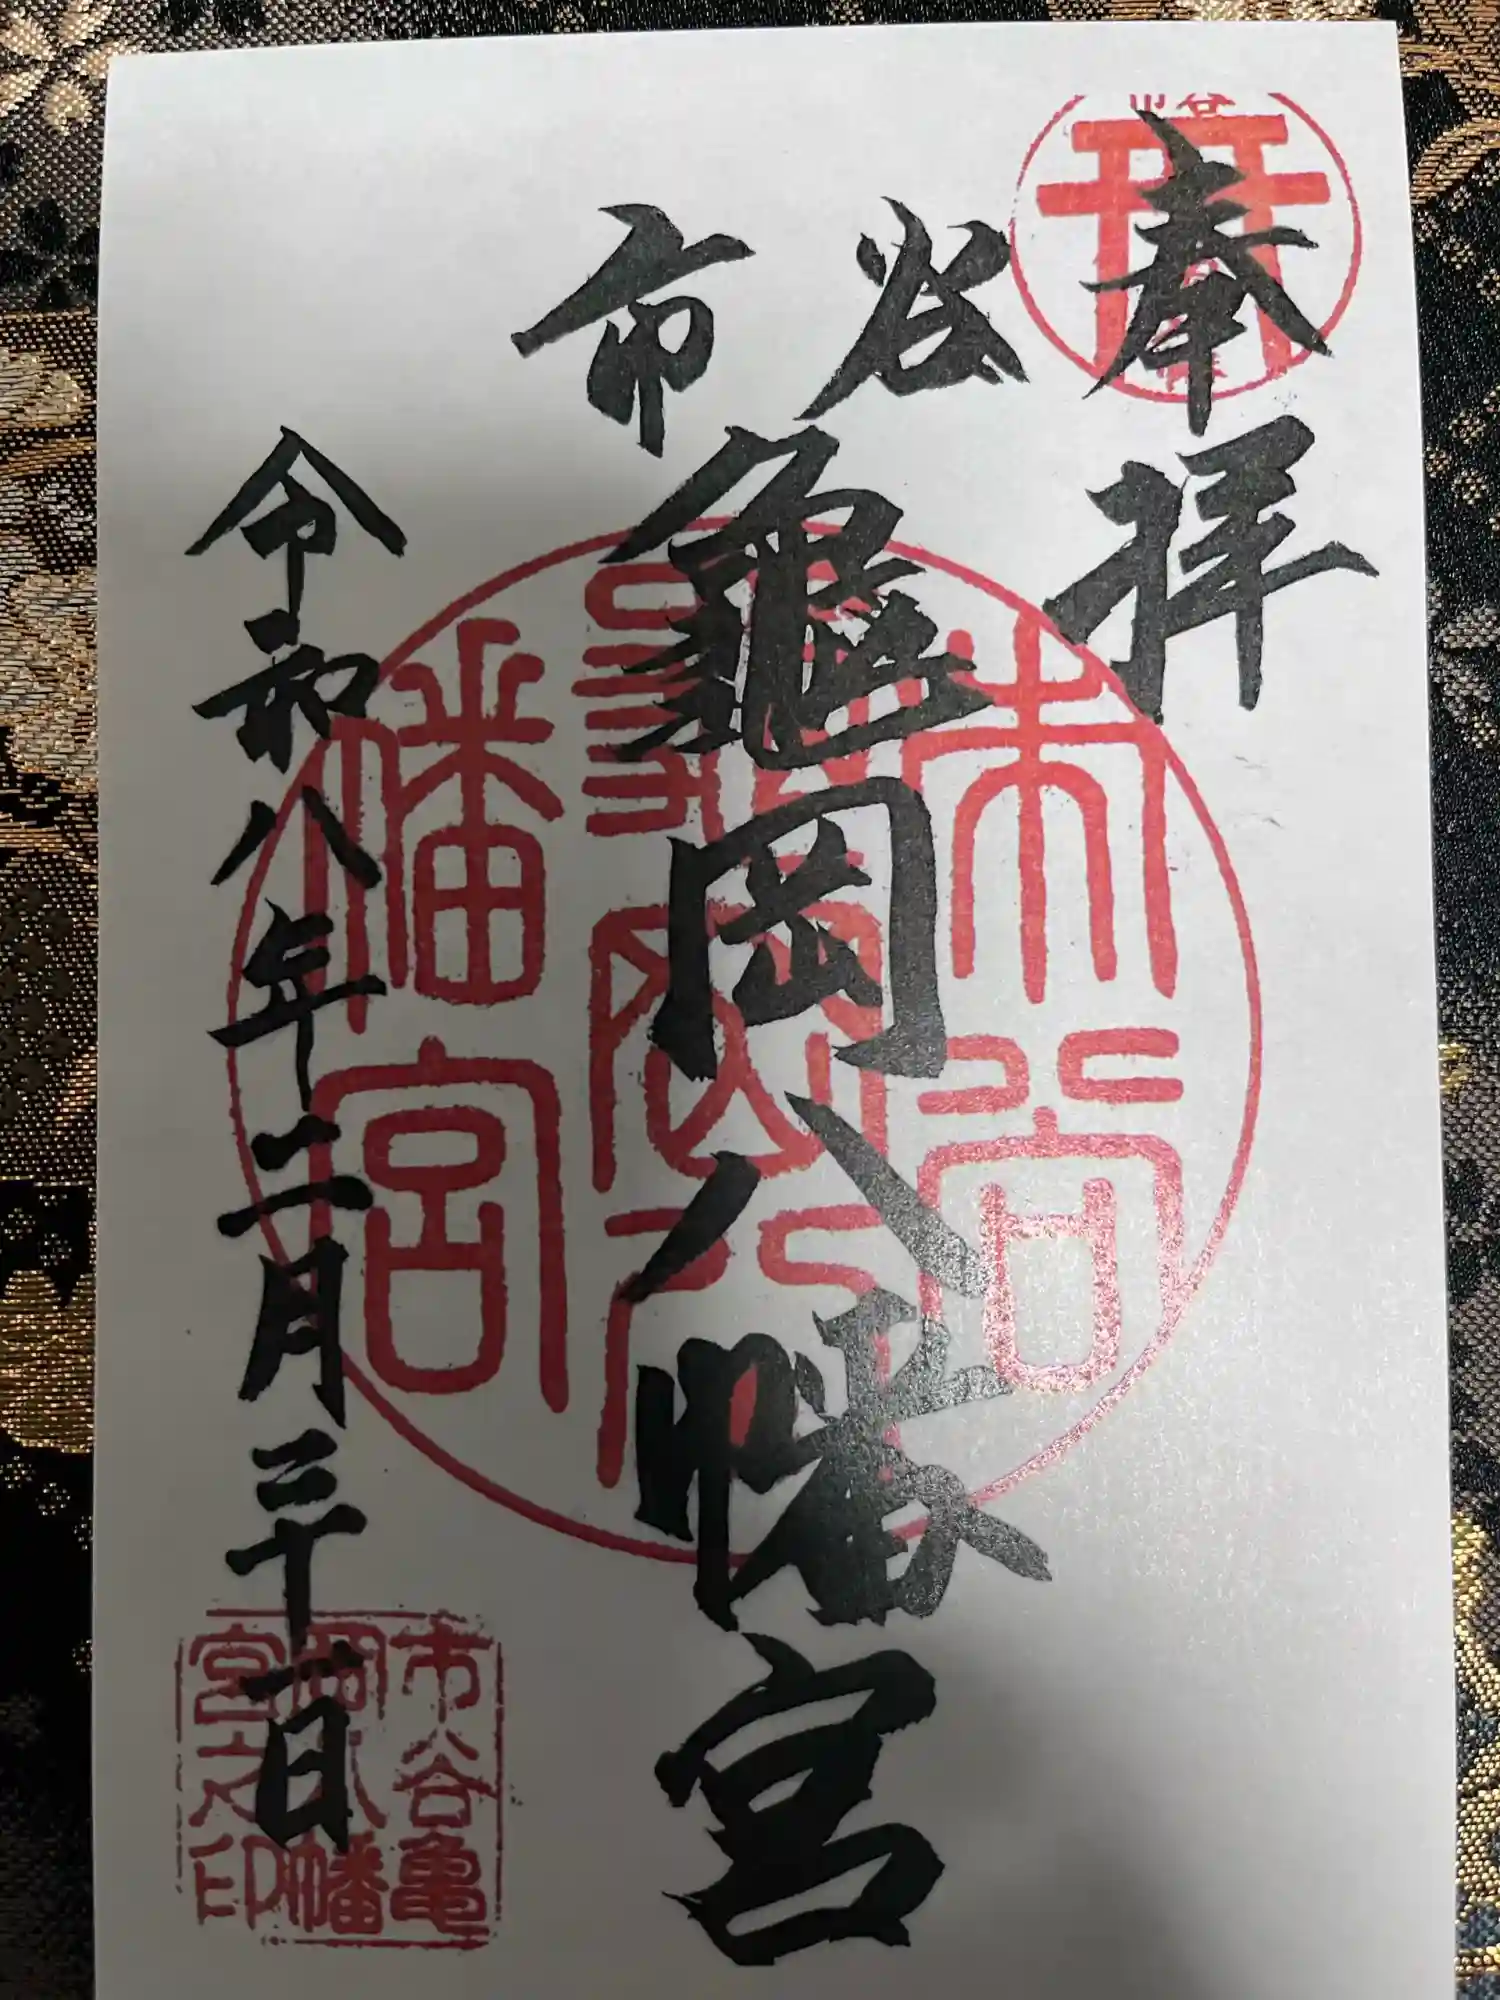 奉拝
市谷
龜岡八幡宮
令和八年二月二十一日
市谷
市谷
亀岡八
幡宮
市谷亀
岡八幡
宮之印